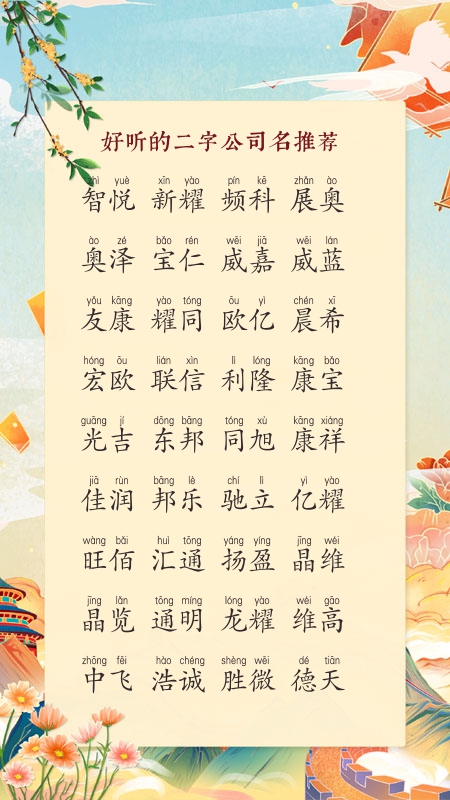 好听的二字公司名推荐
zhì yuè xīn yào pín kē zhǎn ào
智悦 新耀 频科 展奥
ào zé bǎo rén wēi jiā wēi lán
奥泽 宝仁 威嘉 威蓝
yǒu kāng yào tóng ōu yì chén xī
友康 耀同 欧亿 晨希
hóng ōu lián xìn lì lóng kāng bǎo
宏欧 联信 利隆 康宝
guāng jí dōng bāng tóng xù kāng xiáng
光吉 东邦 同旭 康祥
jiā rùn bāng lè chí lì yì yào
佳润 邦乐 驰立 亿耀
wàng bǎi huì tōng yáng yíng jīng wéi
旺佰 汇通 扬盈 晶维
jīng lǎn tōng míng lóng yào wéi gāo
晶览 通明 龙耀 维高
zhōng fēi hào chéng shèng wēi dé tiān
中飞 浩诚 胜微 德天